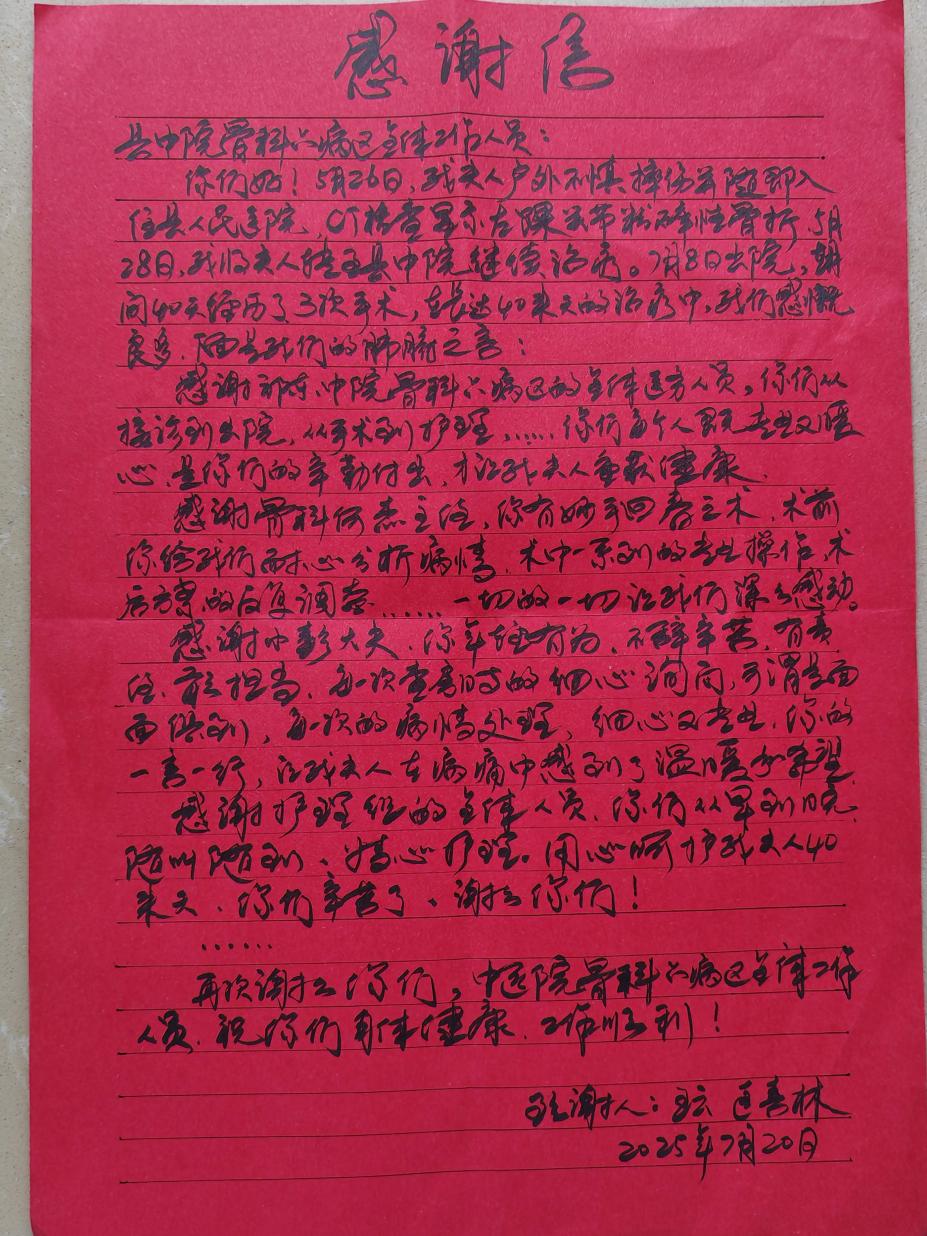 感谢信
县中院骨科六病区全体工作人员：
你们好！5月26日，我夫人户外不慎摔伤并随即入
住县人民医院，CT检查显示左踝关节粉碎性骨折，5月
28日，我将夫人转至县中院继续治疗。7月8日出院，期
间40天经历了3次手术，在长达40来天的治疗中，我们感慨
良多，下面是我们的肺腑之言：
感谢祁东中院骨科六病区的全体医务人员，你们从
接诊到出院，从手术到护理……你们每个人既专业又暖
心，是你们的辛勤付出，才让我夫人重获健康。
感谢骨科何杰主任，你有妙手回春之术，术前
你给我们耐心分析病情，术中一系列的专业操作，术
后方案的反复调整……一切的一切让我们深深感动。
感谢小彭大夫，你年轻有为，不辞辛苦，有责
任、敢担当，每一次查房时的细心询问，可谓是面
面俱到，每一次的病情处理，细心又专业，你的
一言一行，让我夫人在病痛中感到了温暖和希望
感谢护理组的全体人员，你们从早到晚，
随叫随到、精心护理。用心呵护我夫人40
来天，你们辛苦了、谢谢你们！
……
再次谢谢你们，中医院骨科六病区全体工作
人员，祝你们身体健康，工作顺利！
致谢人：善林
2025年7月20日